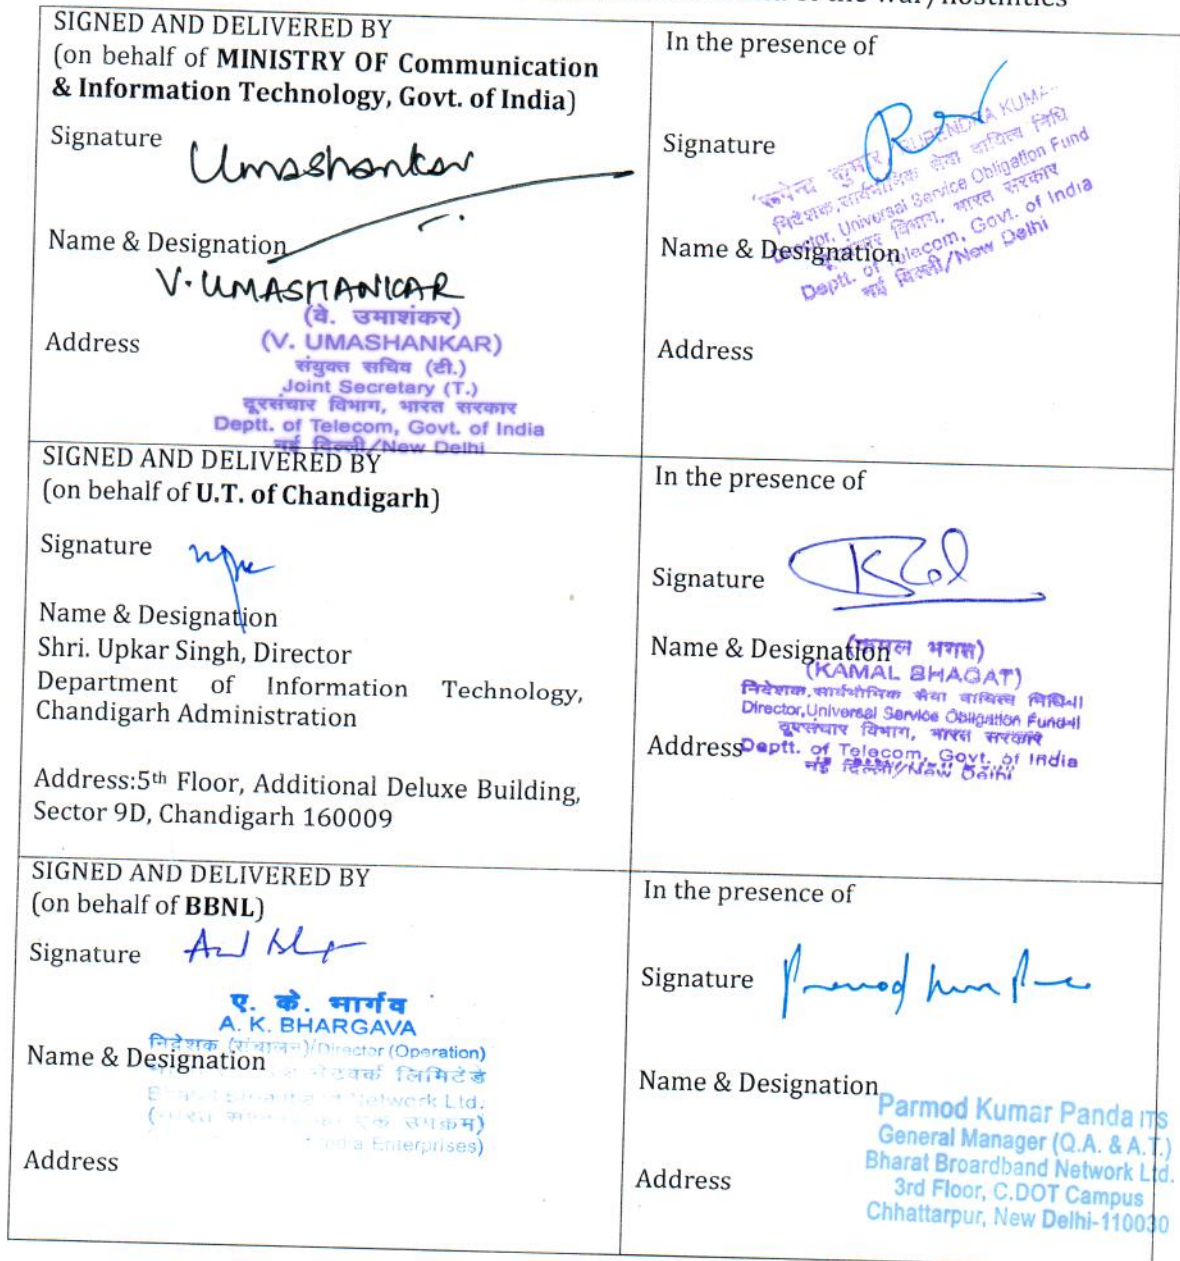 the war/hostilities
SIGNED AND DELIVERED BY
(on behalf of MINISTRY OF Communication
& Information Technology, Govt. of India)
Signature
Umashankar
Name & Designation
V. UMASHANKAR
(वे. उमाशंकर)
(V. UMASHANKAR)
Address
संयुक्त सचिव (टी.)
Joint Secretary (T.)
दूरसंचार विभाग, भारत सरकार
Deptt. of Telecom, Govt. of India
नई दिल्ली/New Delhi
In the presence of
Signature
रूपेन्द्र कुमार/RUPENDRA KUMAR
निदेशक, सार्वभौमिक सेवा दायित्व निधि
Director, Universal Service Obligation Fund
दूरसंचार विभाग, भारत सरकार
Deptt. of Telecom, Govt. of India
नई दिल्ली/New Delhi
Name & Designation
Address
SIGNED AND DELIVERED BY
(on behalf of U.T. of Chandigarh)
Signature
Name & Designation
Shri. Upkar Singh, Director
Department of Information Technology,
Chandigarh Administration
Address:5th Floor, Additional Deluxe Building,
Sector 9D, Chandigarh 160009
In the presence of
Signature
Name & Designation
(कमल भगत)
(KAMAL BHAGAT)
निदेशक, सार्वभौमिक सेवा दायित्व निधि-II
Director, Universal Service Obligation Fund-II
दूरसंचार विभाग, भारत सरकार
Address
Deptt. of Telecom, Govt. of India
नई दिल्ली/New Delhi
SIGNED AND DELIVERED BY
(on behalf of BBNL)
Signature
ए. के. भार्गव
A. K. BHARGAVA
निदेशक (संचालन)/Director (Operation)
Name & Designation
नेटवर्क लिमिटेड
Network Ltd.
का एक उपक्रम)
Enterprises)
Address
In the presence of
Signature
Name & Designation
Parmod Kumar Panda ITS
General Manager (Q.A. & A.T.)
Bharat Broardband Network Ltd.
Address
3rd Floor, C.DOT Campus
Chhattarpur, New Delhi-110030